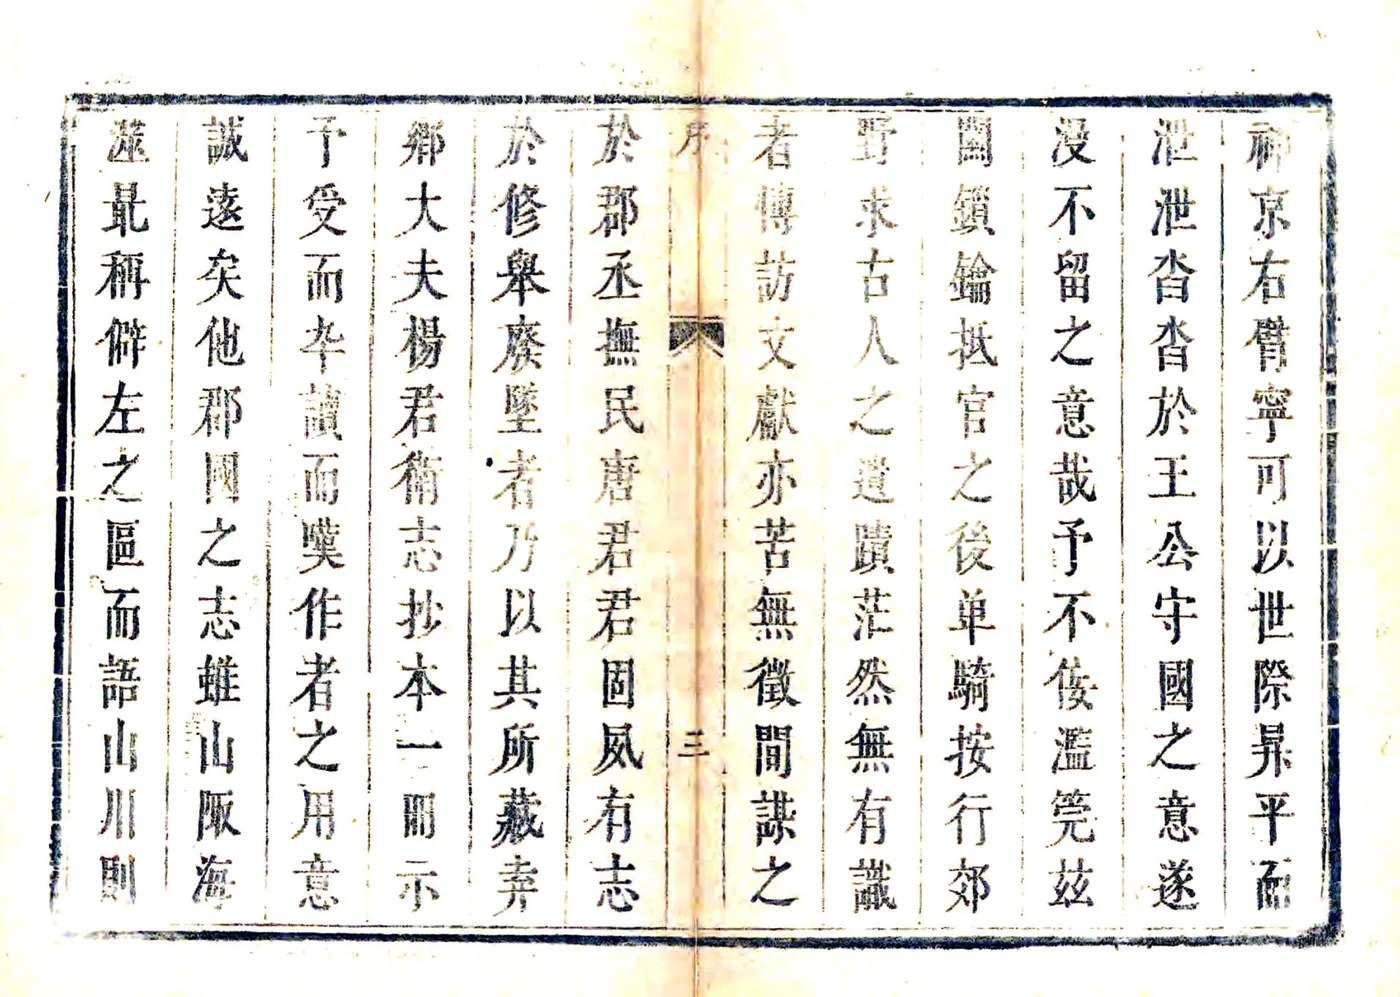 神京右臂寧可以世際昇平而
泄泄沓沓於王公守國之意遂
漫不留之意哉予不佞濫筦茲
關鎖鑰抵官之後单騎按行郊
野求古人之遺蹟茫然無有識
者傳訪文獻亦苦無徵間謀之
序
三
於郡丞撫民唐君君固夙有志
於修舉廢墜者乃以其所藏弆
鄉大夫楊君衛志抄本一冊示
予受而卒讀而嘆作者之用意
誠遠矣他郡國之志雖山陬海
澨最稱僻左之區而語山川則